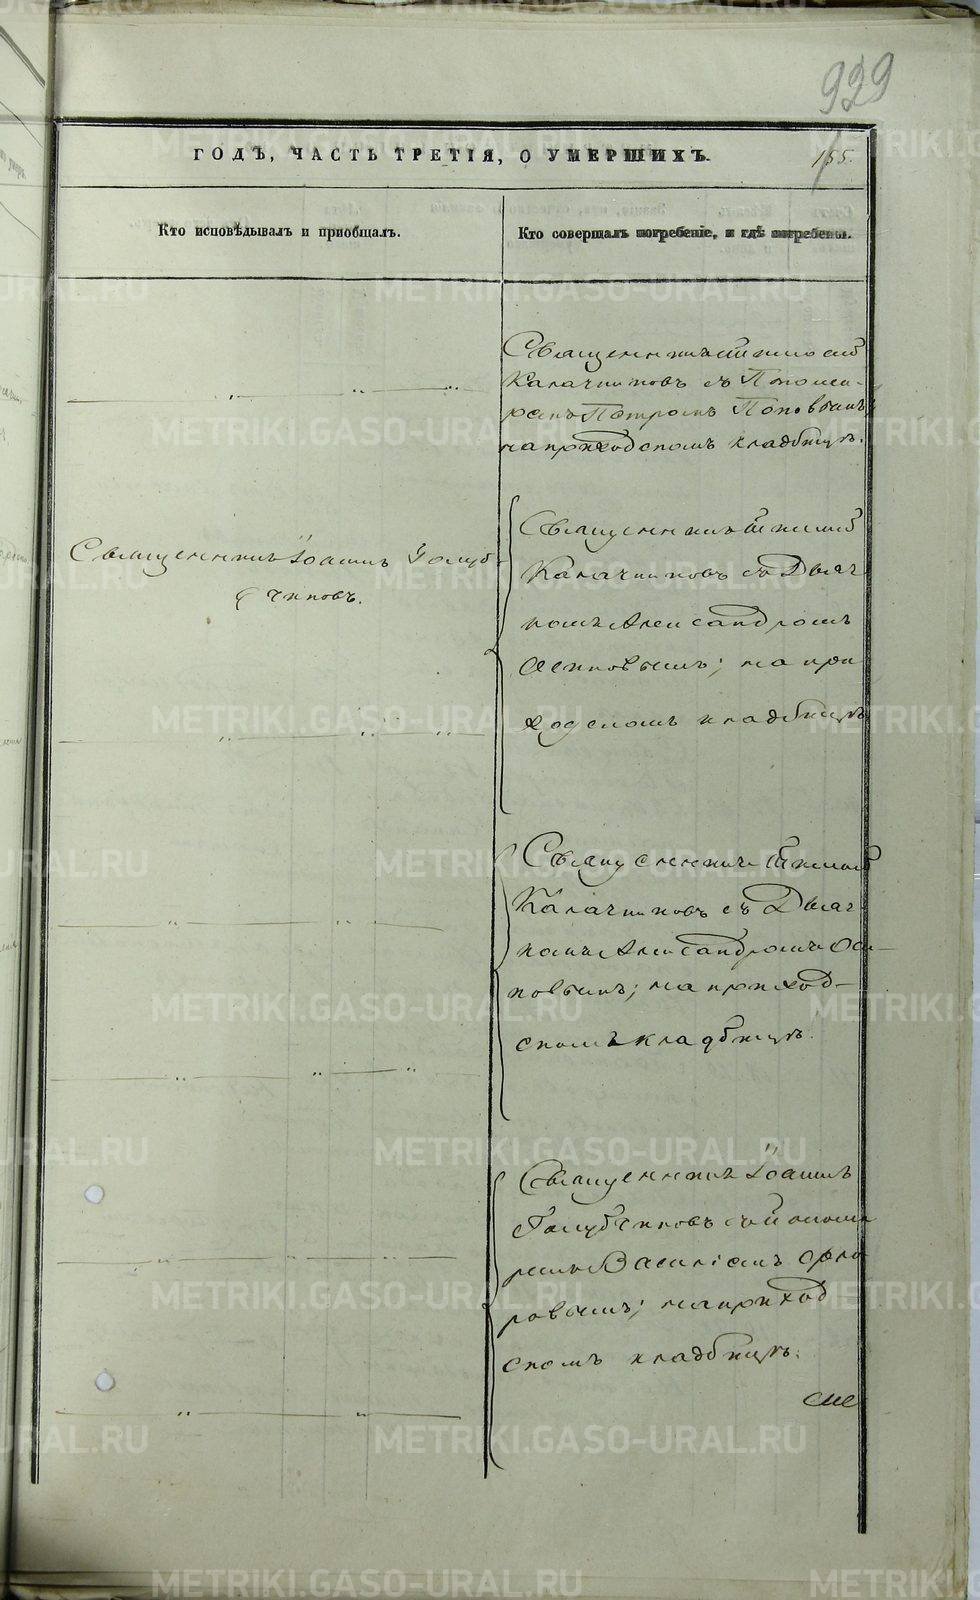 929
ГОДЪ, ЧАСТЬ ТРЕТІЯ, О УМЕРШИХЪ.
155.
Кто исповѣдывалъ и пріобщалъ.
Кто совершалъ погребеніе, и гдѣ погребены.
Священникъ
Калачниковъ съ Понома-
ремъ Петромъ Поповымъ
на приходскомъ кладбищѣ.
Священникъ Іоаннъ Голуб-
чиковъ.
Священникъ
Калачниковъ съ Дьяч
комъ Александромъ
Осиповымъ; на при
ходскомъ кладбищѣ
Священникъ
Калачниковъ съ Дьяч
комъ Александромъ Оси-
повымъ; на приход-
скомъ кладбищѣ.
Священникъ Іоаннъ
Голубчиковъ съ Понома
ремъ Василіемъ
ровымъ; на приход
скомъ кладбищѣ.
METRIKI.GASO-URAL.RU